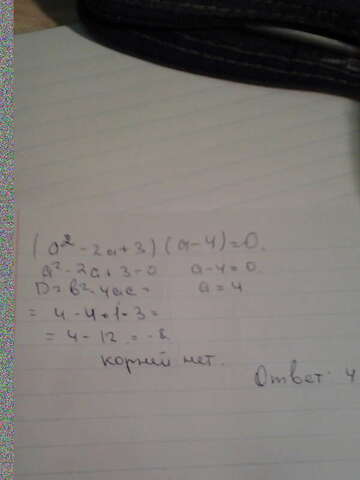 (a² - 2a + 3)(a - 4) = 0.
a² - 2a + 3 = 0 a - 4 = 0
D = b² - 4ac = a = 4
= 4 - 4 * 1 * 3 =
= 4 - 12 = -8.
корней нет.
Ответ: 4